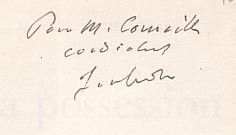 Pour M. Corneille
cordialement
a possession